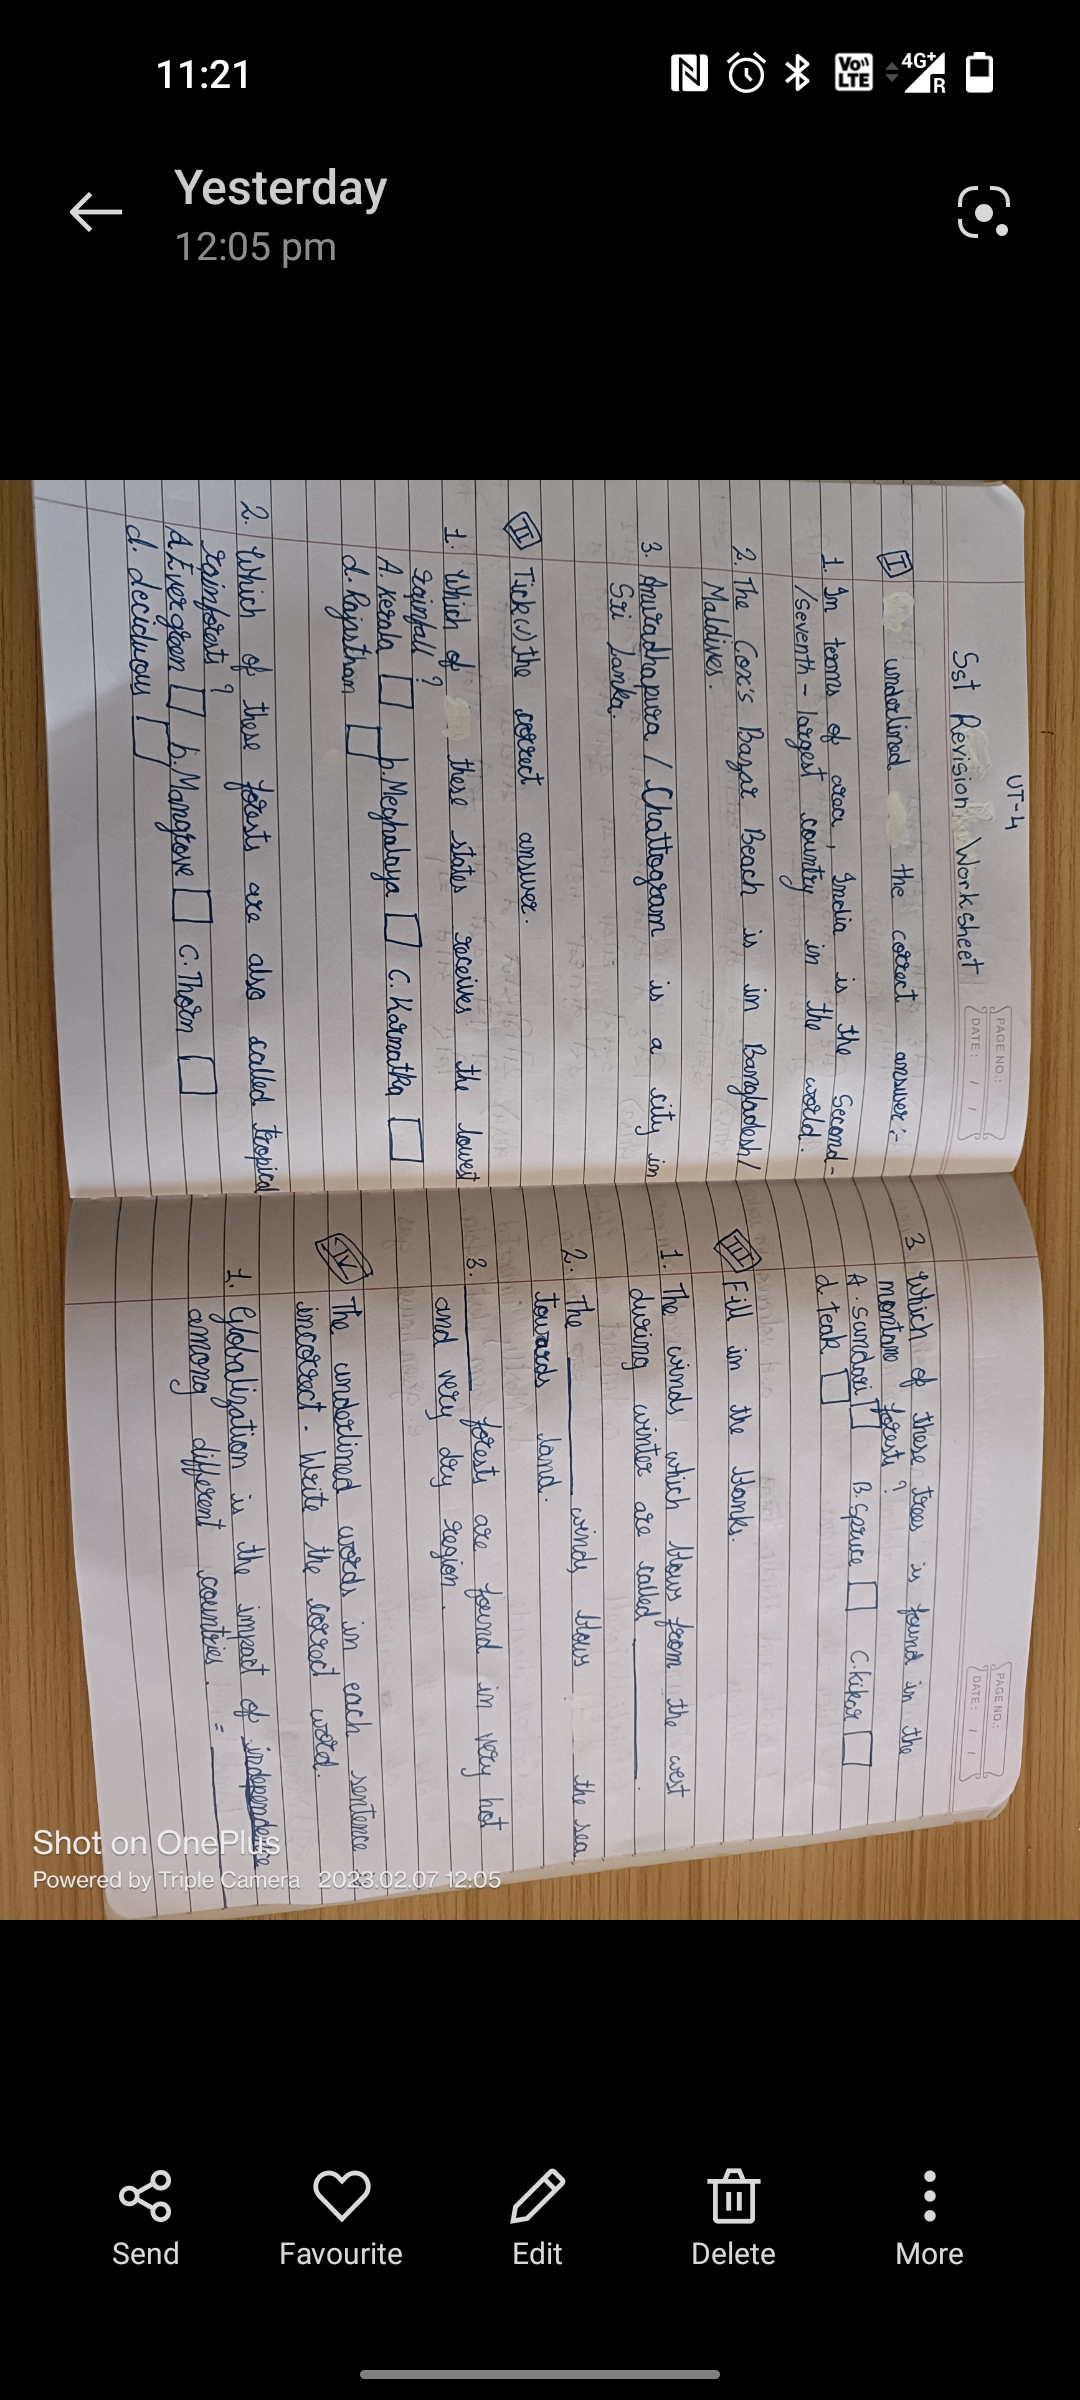 11:21
Vo))
LTE
4G+
R
Yesterday
12:05 pm
UT-4
Sst Revision Worksheet
PAGE NO.:
DATE: / /
I underlined the correct answer:-
1. In terms of area, India is the second-
/seventh-largest country in the world.
2. The Cox's Bazar Beach is in Bangladesh/
Maldives.
3. Anuradhapura / Chattogram is a city in
Sri Lanka.
II Tick(✓) the correct answer.
1. Which of these states receives the lowest
rainfall?
A. Kerala b. Meghalaya C. Karnatka
d. Rajastham
2. Which of these forests are also called tropical
rainforests?
A. Evergreen b. Mangrove C. Thorn
d. deciduous
PAGE NO.:
DATE: / /
3 Which of these trees is found in the
montane forests?
A. Sundari B. Spruce C. Kikar
d. teak
III Fill in the blanks.
1. The winds which blows from the west
during winter are called ______.
2. The ______ winds blows the sea
towards land.
3. ______ forests are found in very hot
and very dry region.
IV The underlined words in each sentence is
incorrect. Write the correct word.
1. Globalization is the impact of independence
among different countries. = ______
Shot on OnePlus
Powered by Triple Camera 2023.02.07 12:05
Send
Favourite
Edit
Delete
More